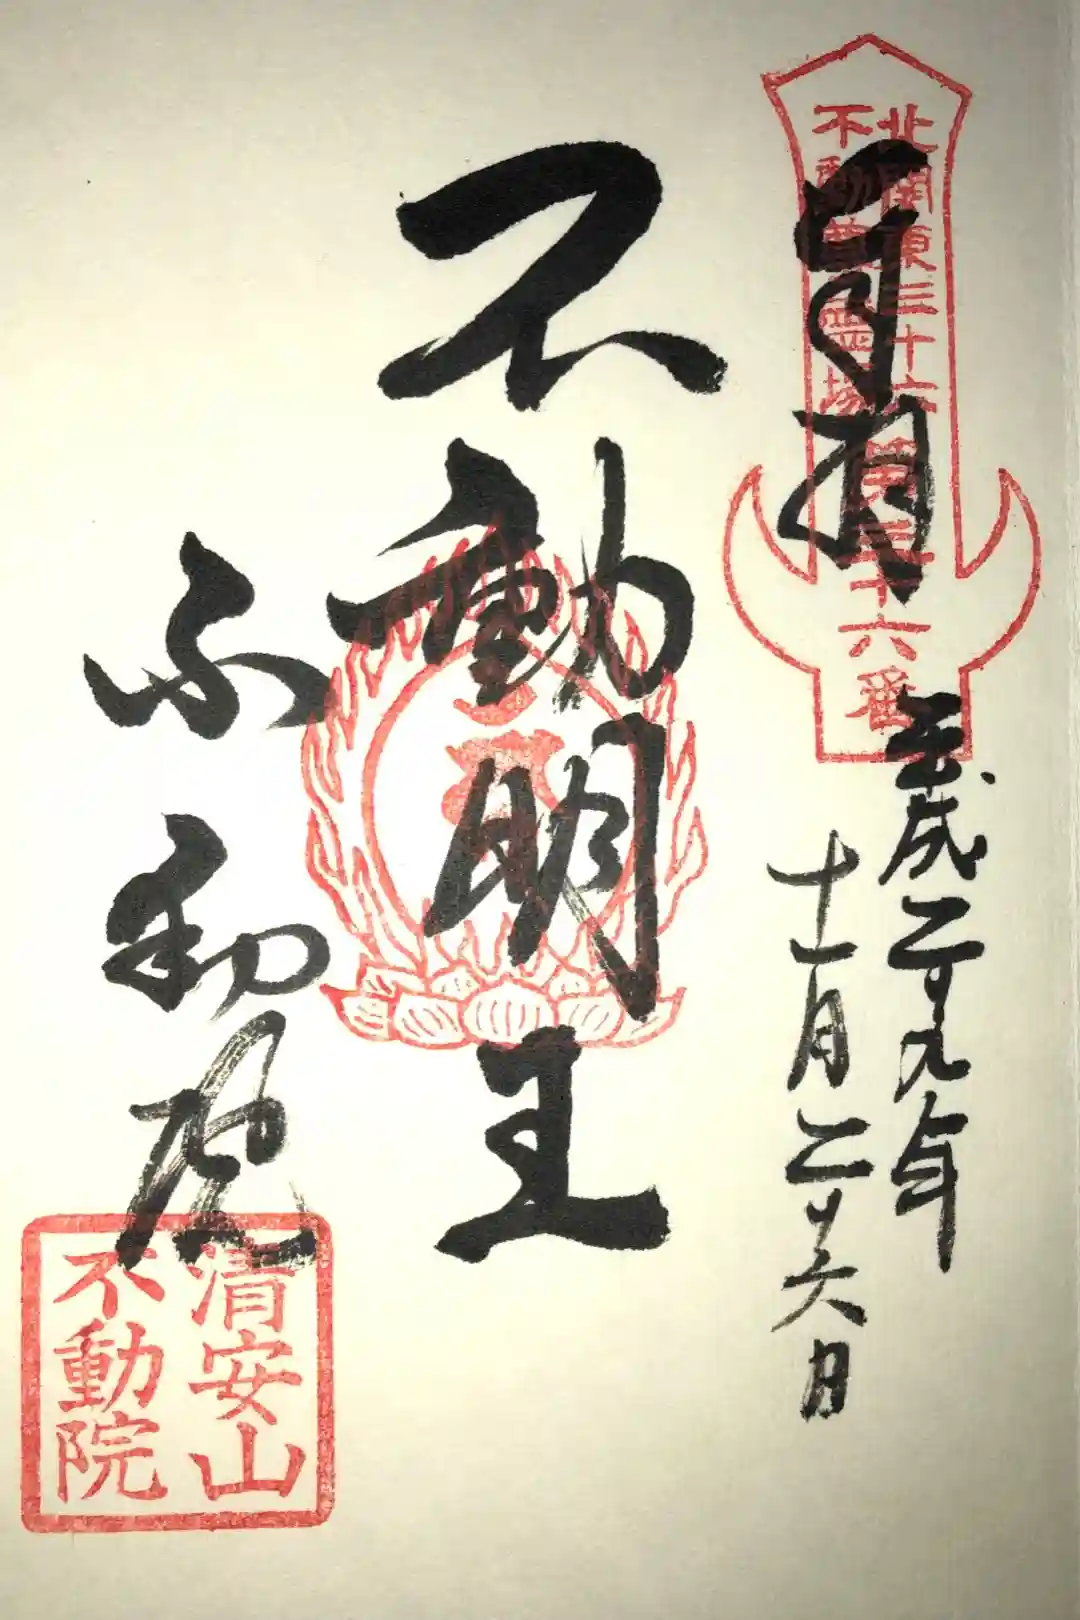 北関東三十六
不動尊霊場
第三十六番
平成二十九年
十一月二十六日
不動明王
不動院
清安山
不動院